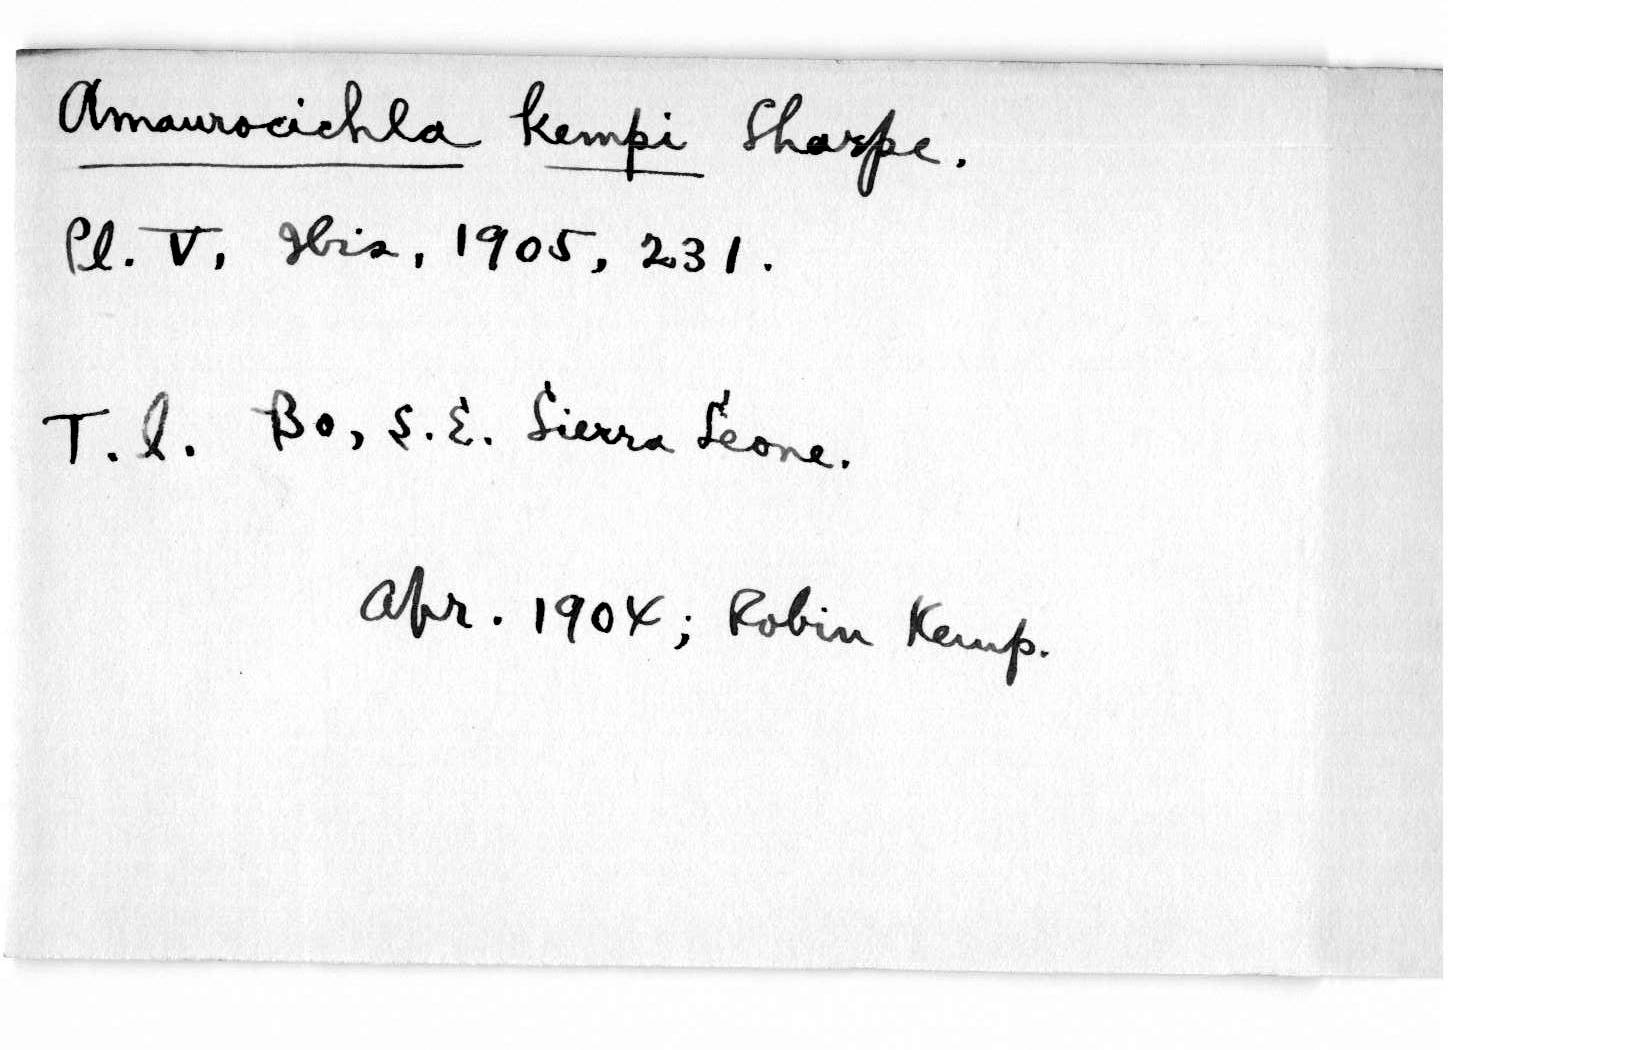 Amaurocichla kempi Sharpe.
Pl. V, Ibis, 1905, 231.
T. l. Bo, S. E. Sierra Leone.
Apr. 1904; Robin Kemp.